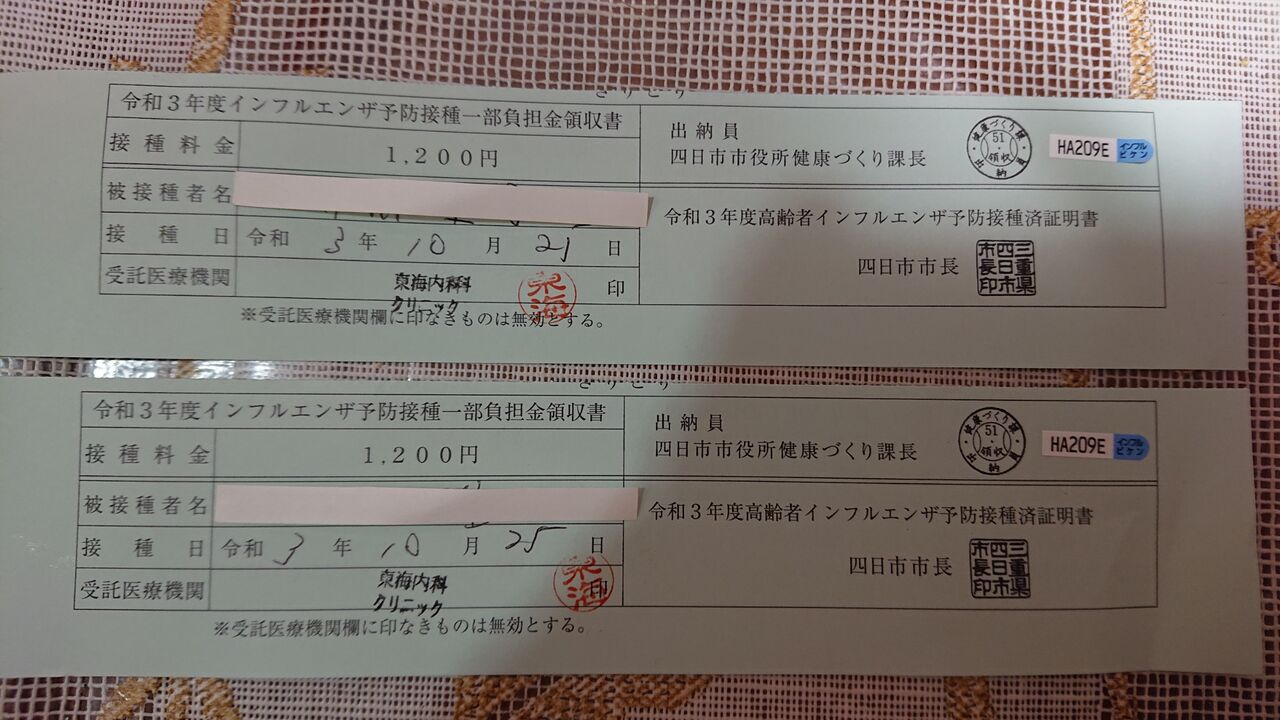 きりとり
令和3年度インフルエンザ予防接種一部負担金領収書
接種料金 1,200円
被接種者名
接種日 令和 3年 10月 21日
受託医療機関 東海内科クリニック 東海 印
※受託医療機関欄に印なきものは無効とする。
出納員
四日市市役所健康づくり課長
健康づくり課 51 領収 出納員
HA209E インフルビケン
令和3年度高齢者インフルエンザ予防接種済証明書
四日市市長
三重県四日市市長印
きりとり
令和3年度インフルエンザ予防接種一部負担金領収書
接種料金 1,200円
被接種者名
接種日 令和 3年 10月 25日
受託医療機関 東海内科クリニック 東海 印
※受託医療機関欄に印なきものは無効とする。
出納員
四日市市役所健康づくり課長
健康づくり課 51 領収 出納員
HA209E インフルビケン
令和3年度高齢者インフルエンザ予防接種済証明書
四日市市長
三重県四日市市長印